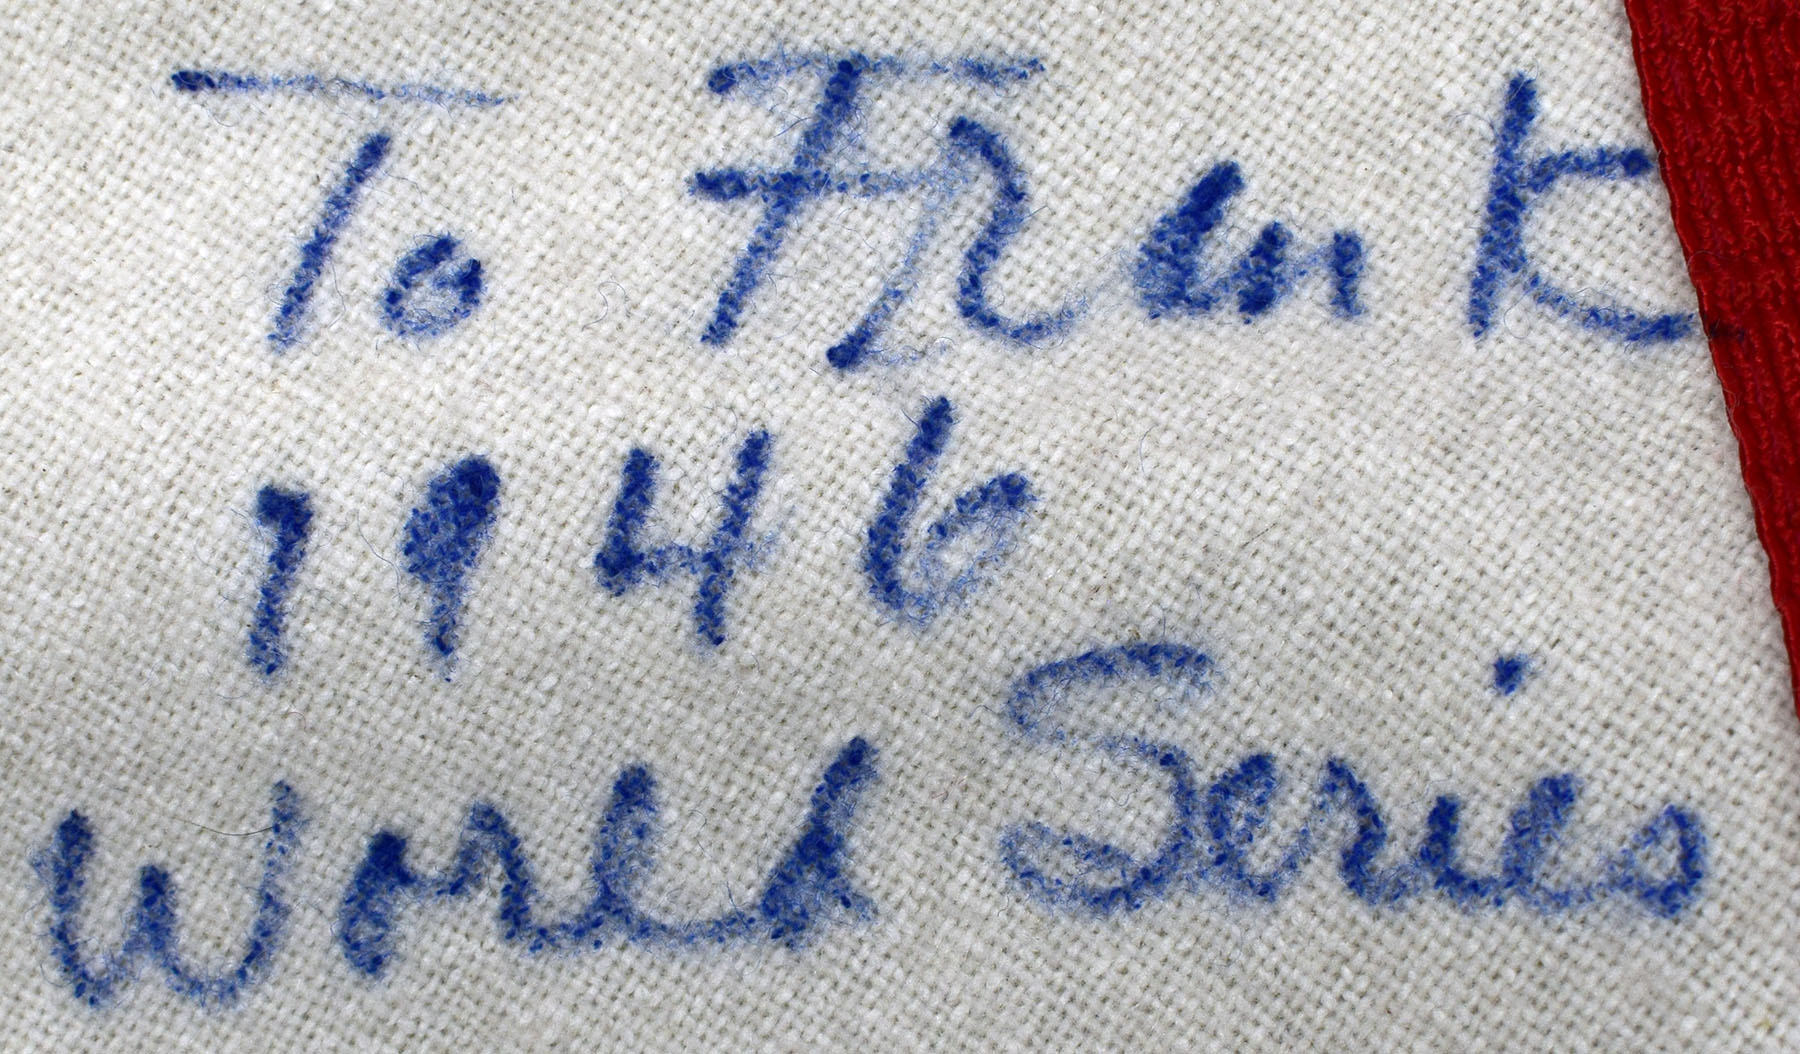 To Frank
1946
World Series